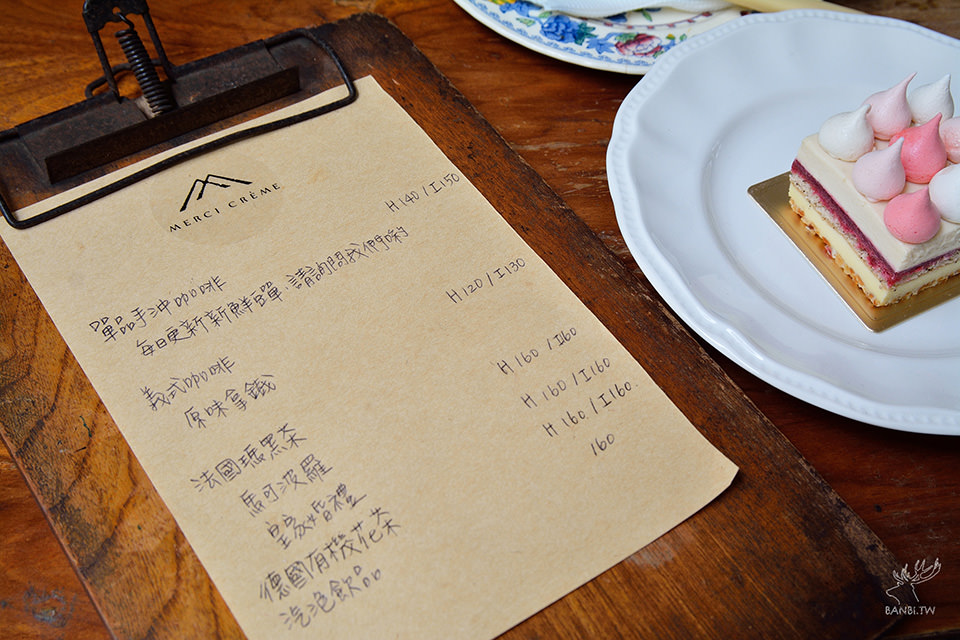 MERCI CRÈME
單品手沖咖啡 H 140 / I 150
每日更新新鮮單, 請詢問我們喲
義式咖啡
原味拿鐵 H 120 / I 130
法國瑪黑茶
馬可波羅 H 160 / I 160
皇家婚禮 H 160 / I 160
德國有機花茶 H 160 / I 160.
汽泡飲品 160
BANBI.TW